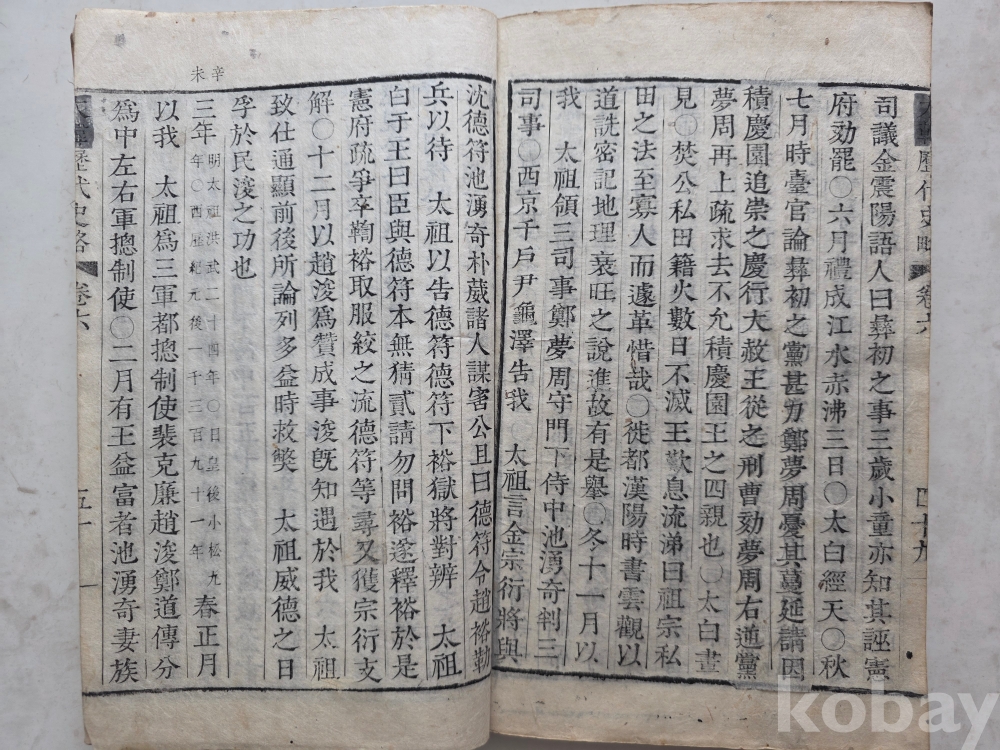 司議金震陽語人曰彛初之事三歲小童亦知其誣憲
府劾罷〇六月禮成江水赤沸三日〇太白經天〇秋
七月時臺官論彛初之黨甚力鄭夢周憂其蔓延請因
積慶園追崇之慶行大赦王從之刑曹劾夢周右逆黨
夢周再上疏求去不允積慶園王之四親也〇太白晝
見〇焚公私田籍火數日不滅王歎息流涕曰祖宗私
田之法至寡人而遽革惜哉〇徙都漢陽時書雲觀以
道詵密記地理衰旺之說進故有是舉〇冬十一月以
我 太祖領三司事鄭夢周守門下侍中池湧奇判三
司事〇西京千戶尹龜澤告我 太祖言金宗衍將與
卷六 四十九
沈德符池湧奇朴葳諸人謀害公且曰德符令趙裕勒
兵以待 太祖以告德符德符下裕獄將對辨 太祖
白于王曰臣與德符本無猜貳請勿問裕遂釋裕於是
憲府疏爭卒鞫裕取服絞之流德符等尋又獲宗衍支
解〇十二月以趙浚爲贊成事浚旣知遇於我 太祖
致仕通顯前後所論列多益時救獘 太祖威德之日
孚於民浚之功也
辛未
三年 明太祖洪武二十四年〇日皇後小松九年〇西歷紀元後一千三百九十一年 春正月
以我 太祖爲三軍都摠制使裴克廉趙浚鄭道傳分
爲中左右軍摠制使〇二月有王益富者池湧奇妻族
歷代史略 卷六 五十
kobay